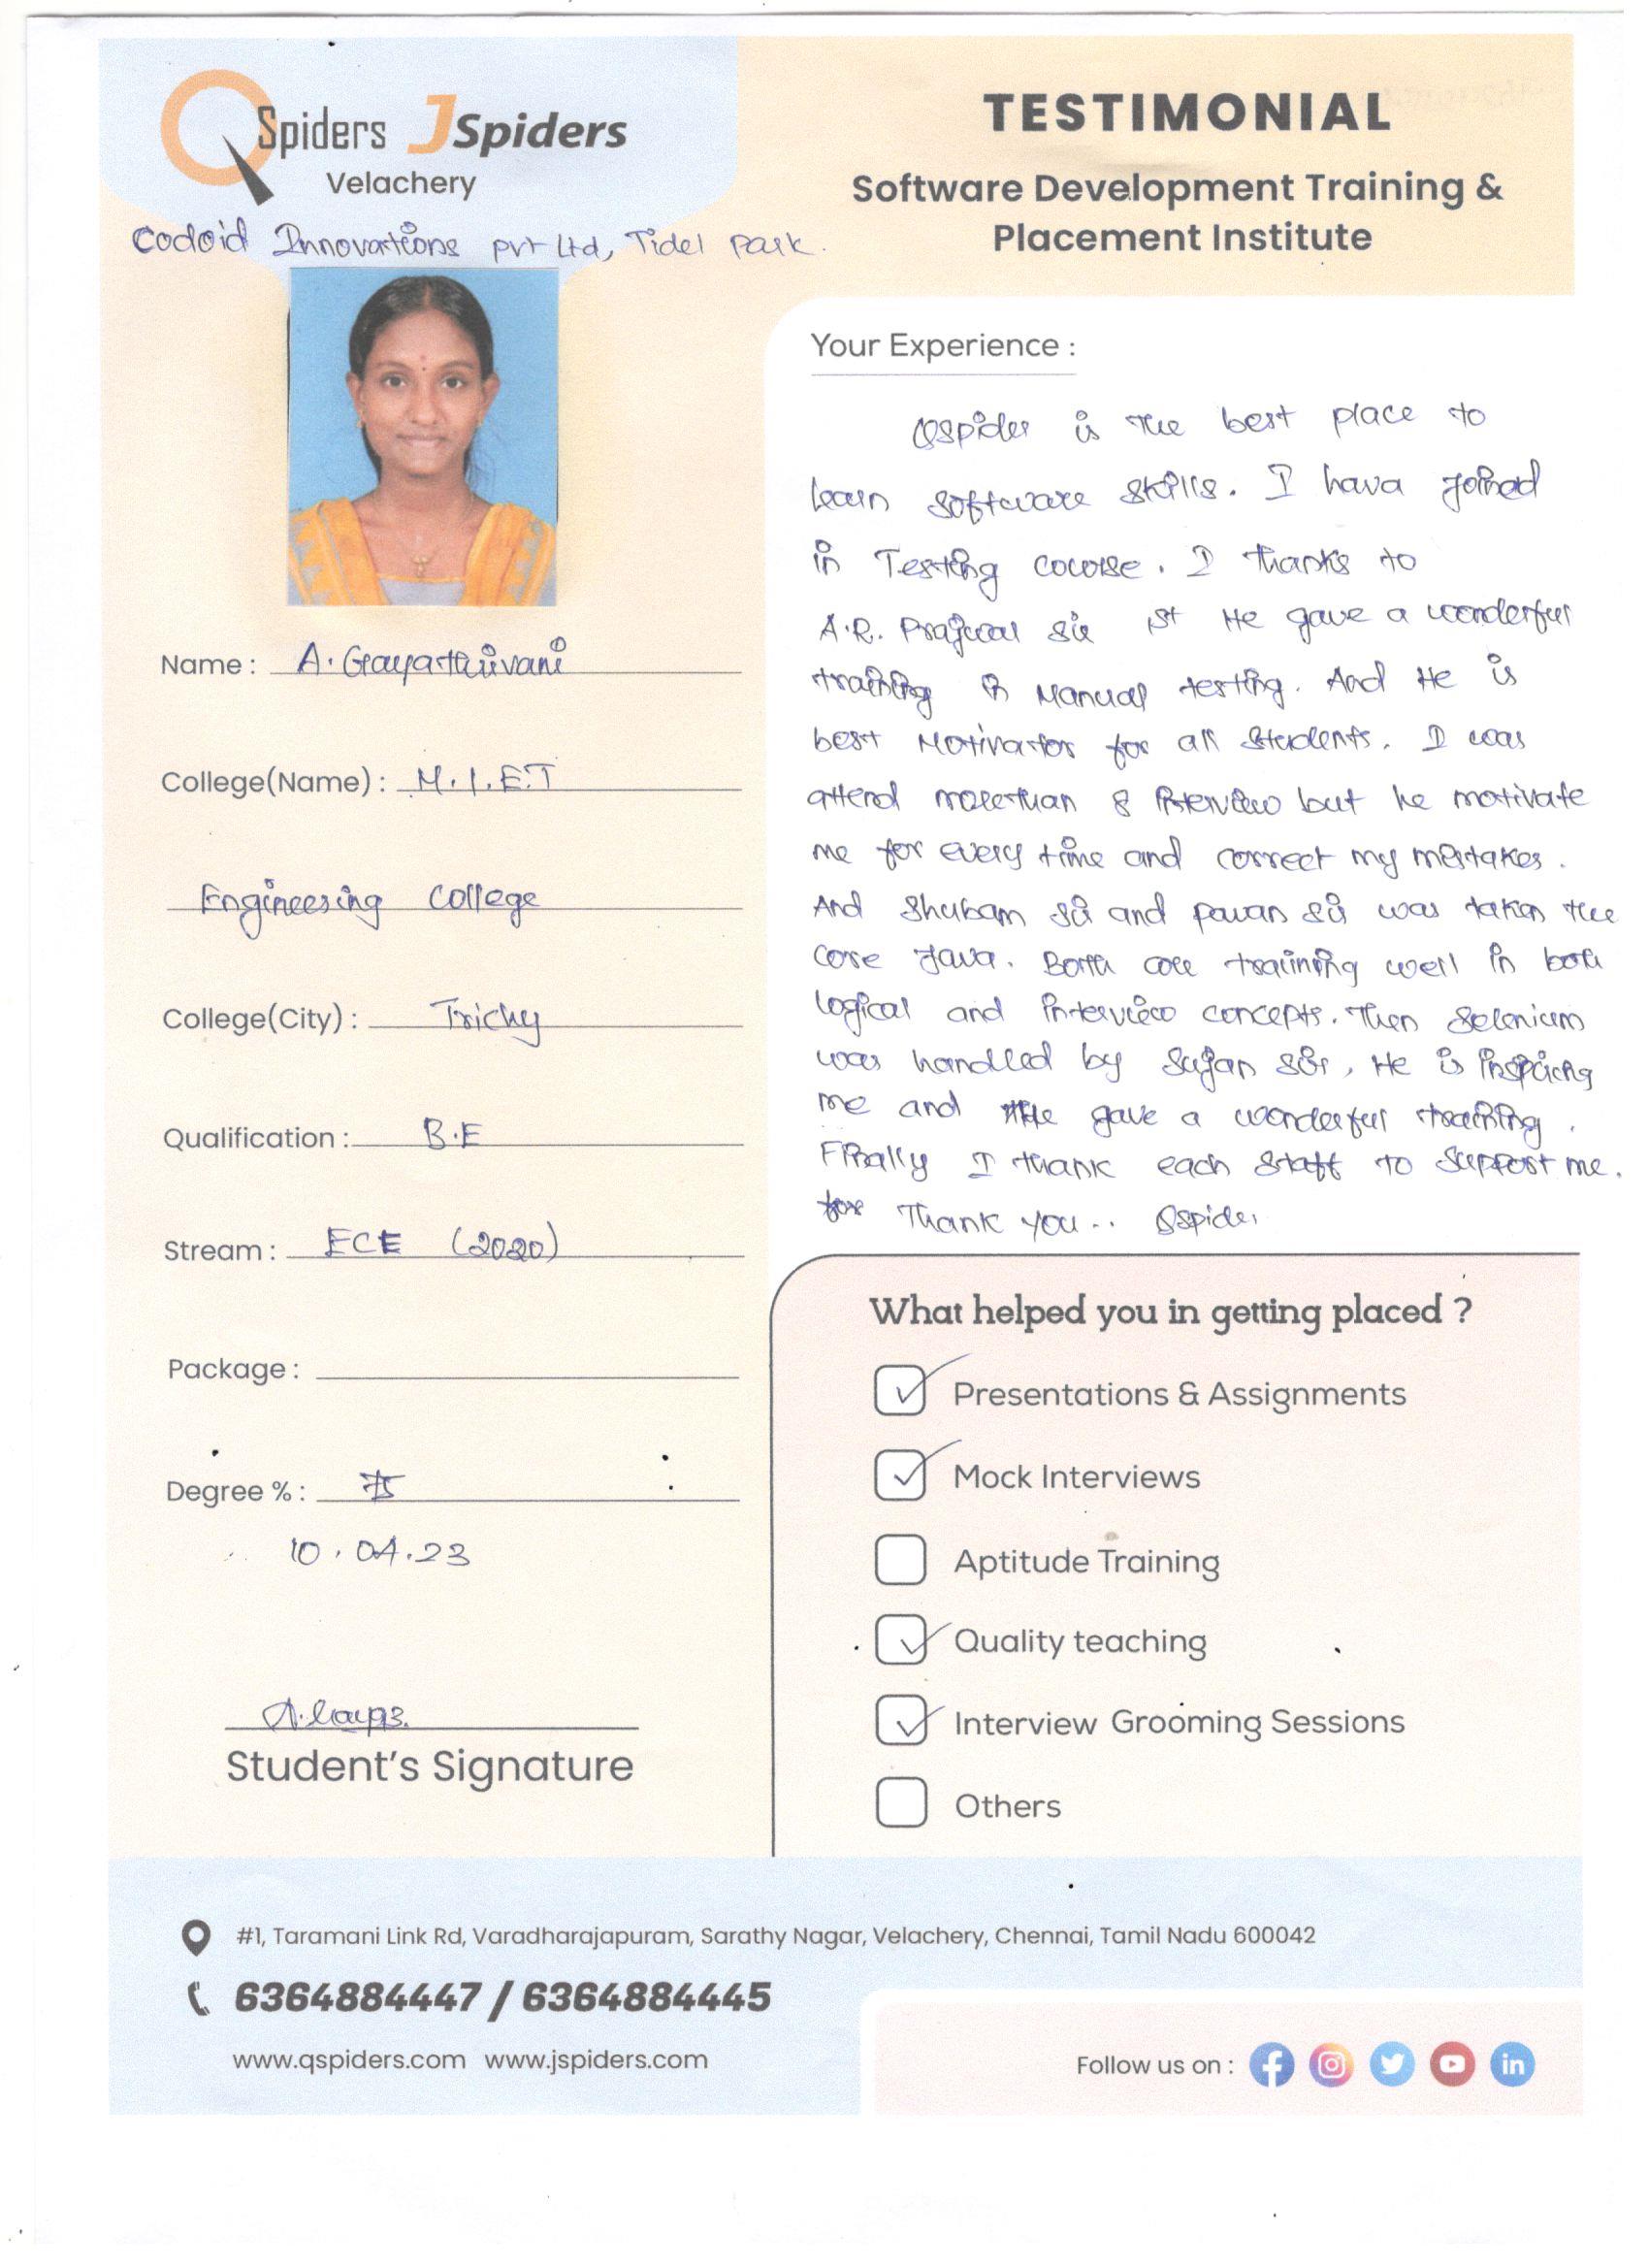 QSpiders JSpiders
Velachery
Codoid Innovations pvt Ltd, Tidel Park.
TESTIMONIAL
Software Development Training &
Placement Institute
Name : A. Gayathirivani
College(Name) : M.I.E.T
Engineering College
College(City) : Trichy
Qualification : B.E
Stream : ECE (2020)
Package :
Degree % : 75
10.04.23
Student's Signature
Your Experience :
Qspider is the best place to
learn software skills. I hava joined
in Testing course. I thanks to
A.R. Prajwal sir 1st He gave a wonderful
training in Manual testing. And He is
best Motivator for all students. I was
attend morethan 8 interview but he motivate
me for every time and correct my mistakes.
And Shubam sir and pavan sir was taken the
core Java. Both are trainning well in both
logical and interview concepts. Then Selenium
was handled by Sujan sir, He is inspiring
me and He gave a wonderful training.
Finally I thank each staff to support me.
for Thank you.. Qspider
What helped you in getting placed ?
Presentations & Assignments
Mock Interviews
Aptitude Training
Quality teaching
Interview Grooming Sessions
Others
#1, Taramani Link Rd, Varadharajapuram, Sarathy Nagar, Velachery, Chennai, Tamil Nadu 600042
6364884447 / 6364884445
www.qspiders.com www.jspiders.com
Follow us on :